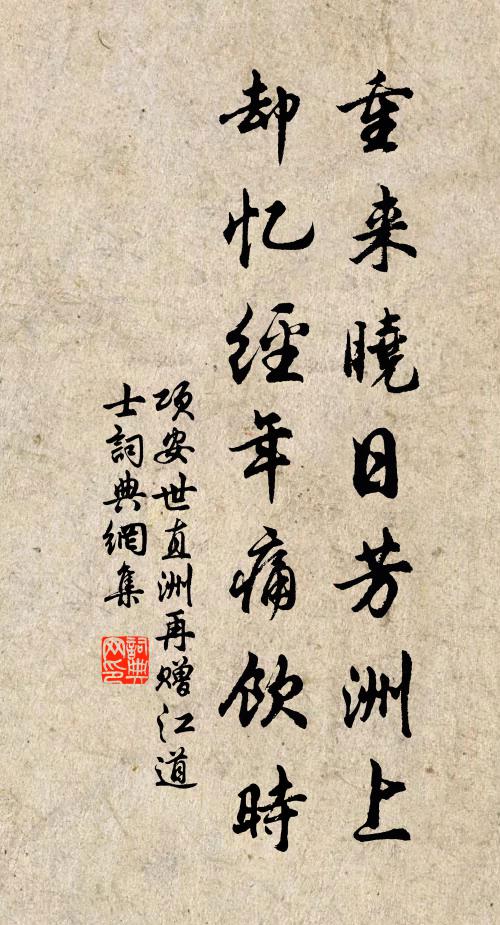 重来曉日芳洲上
却忆經年痛飲時
项安世直洲再赠江道
士詞典網集
詞典
网印